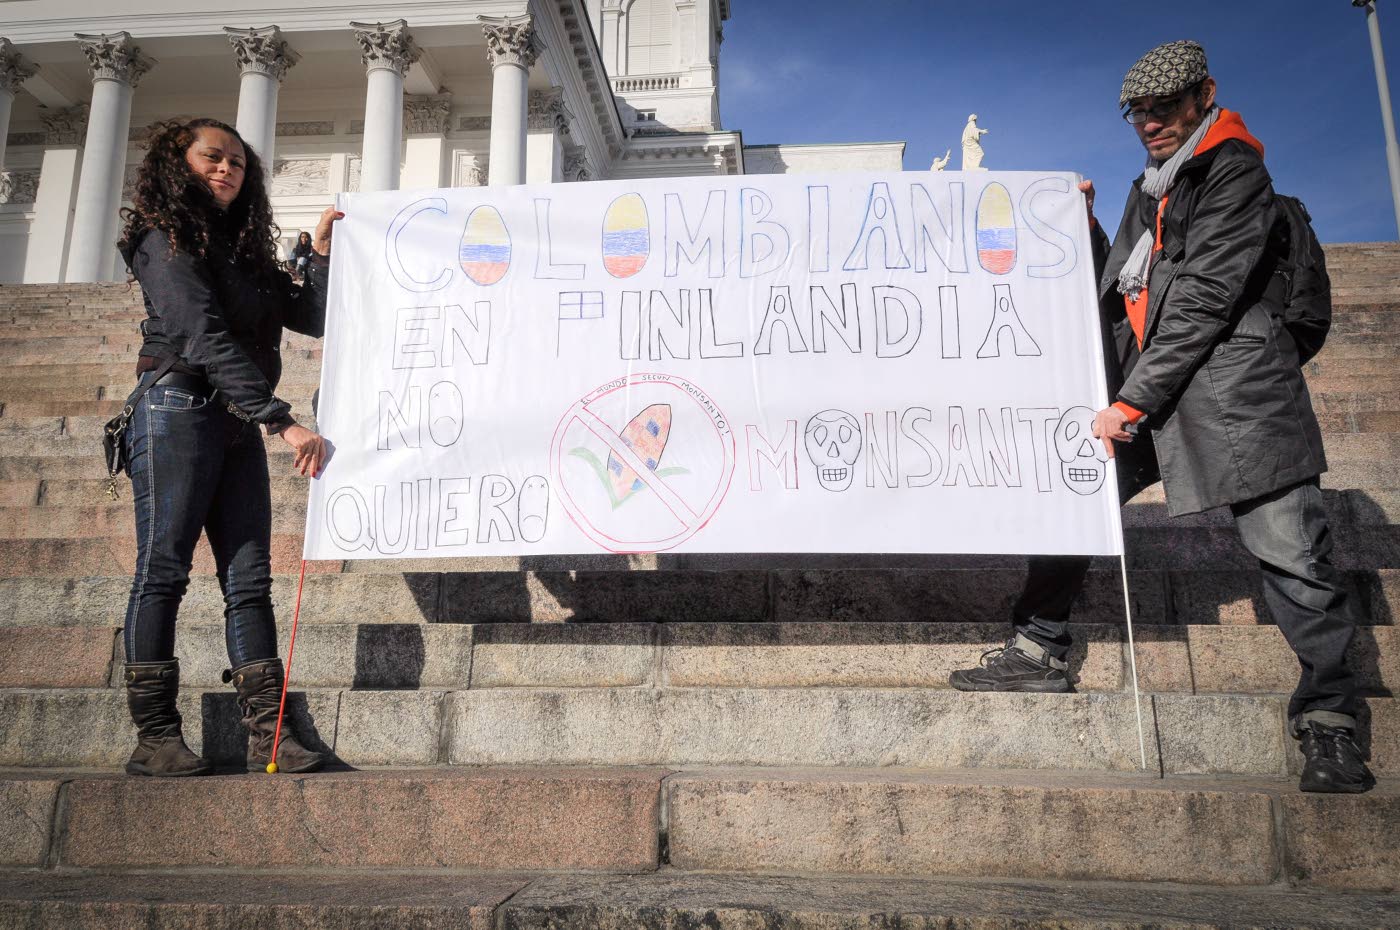 COLOMBIANOS
EN FINLANDIA
NO
QUIERO
EL MUNDO SEGUN MONSANTO!
MONSANTO